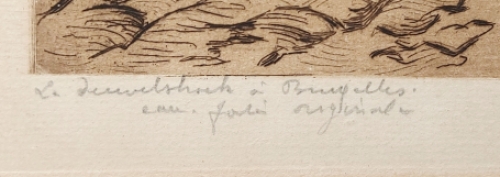 Le Deuvelshoek à Bruxelles.
eau-forte originale